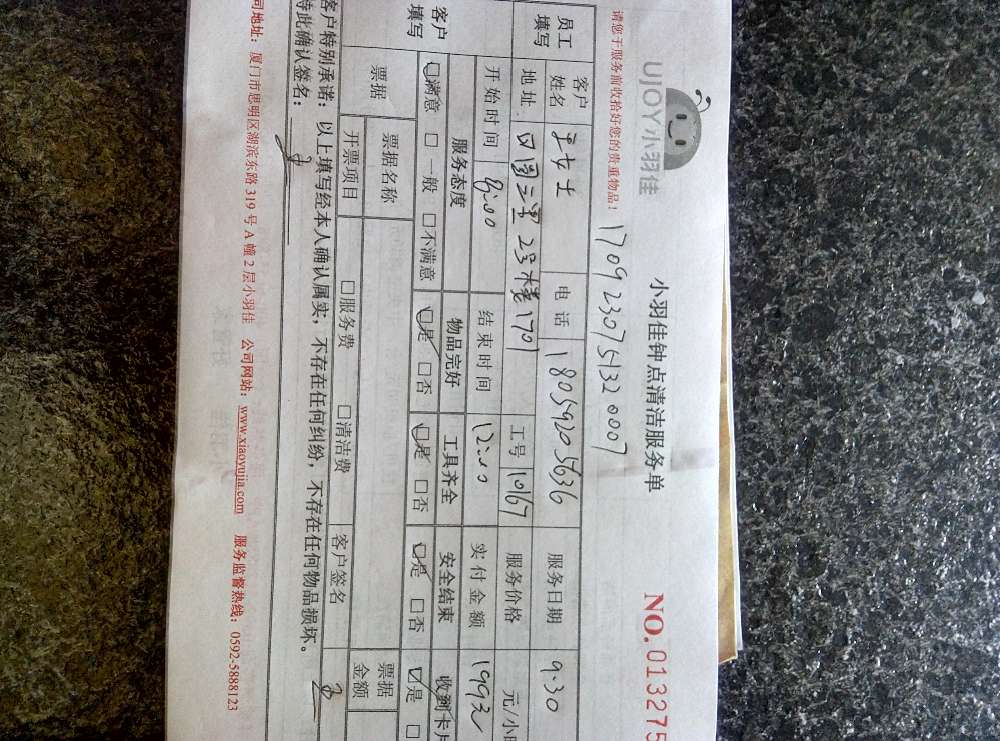 UJOY小羽佳
小羽佳钟点清洁服务单
NO. 013275
请您于服务前收拾好您的贵重物品！
170923075132 0007
员工填写 客户姓名 王女士 电话 18059205636 服务日期 9.30
地址： 23楼1701 工号 10167 服务价格 元/小
客户填写 开始时间 8:00 结束时间 12:00 实付金额 199
服务态度 物品完好 工具齐全 安全结束 收到卡
☑满意 □一般 □不满意 ☑是 □否 ☑是 □否 ☑是 □否 ☑是 □
票据 票据名称 票据金额
开票项目 □服务费 □清洁费 客户签名
客户特别承诺：以上填写经本人确认属实，不存在任何纠纷，不存在任何物品损坏。
特此确认签名：
司地址：厦门市思明区湖滨东路 319 号 A 幢 2 层小羽佳 公司网站：www.xiaoyujia.com 服务监督热线：0592-5888123